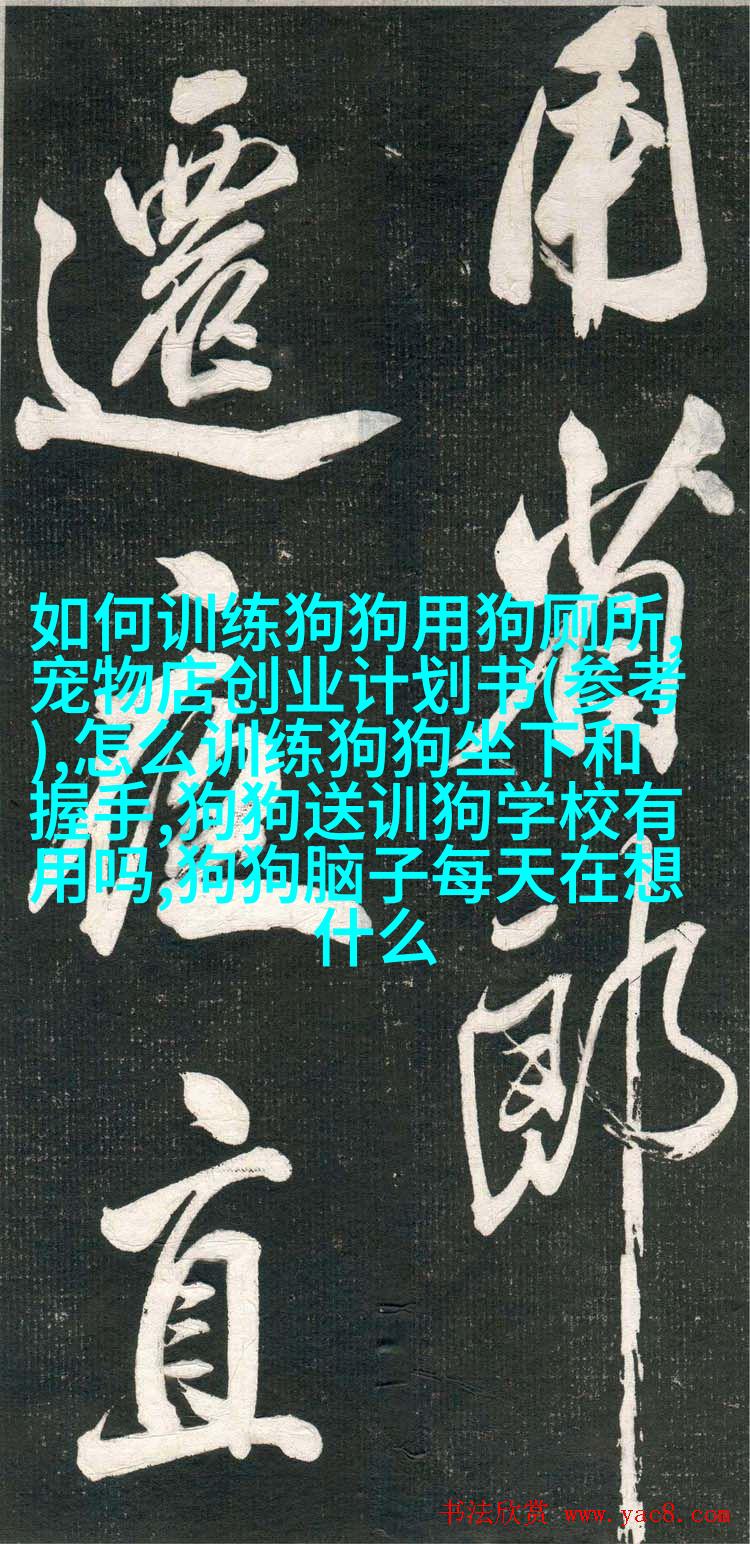 用
省
郎
遷
直
如何训练狗狗用狗厕所,
宠物店创业计划书(参考
),怎么训练狗狗坐下和
握手,狗狗送训狗学校有
用吗,狗狗脑子每天在想
什么
书法欣赏 www.yac8.com